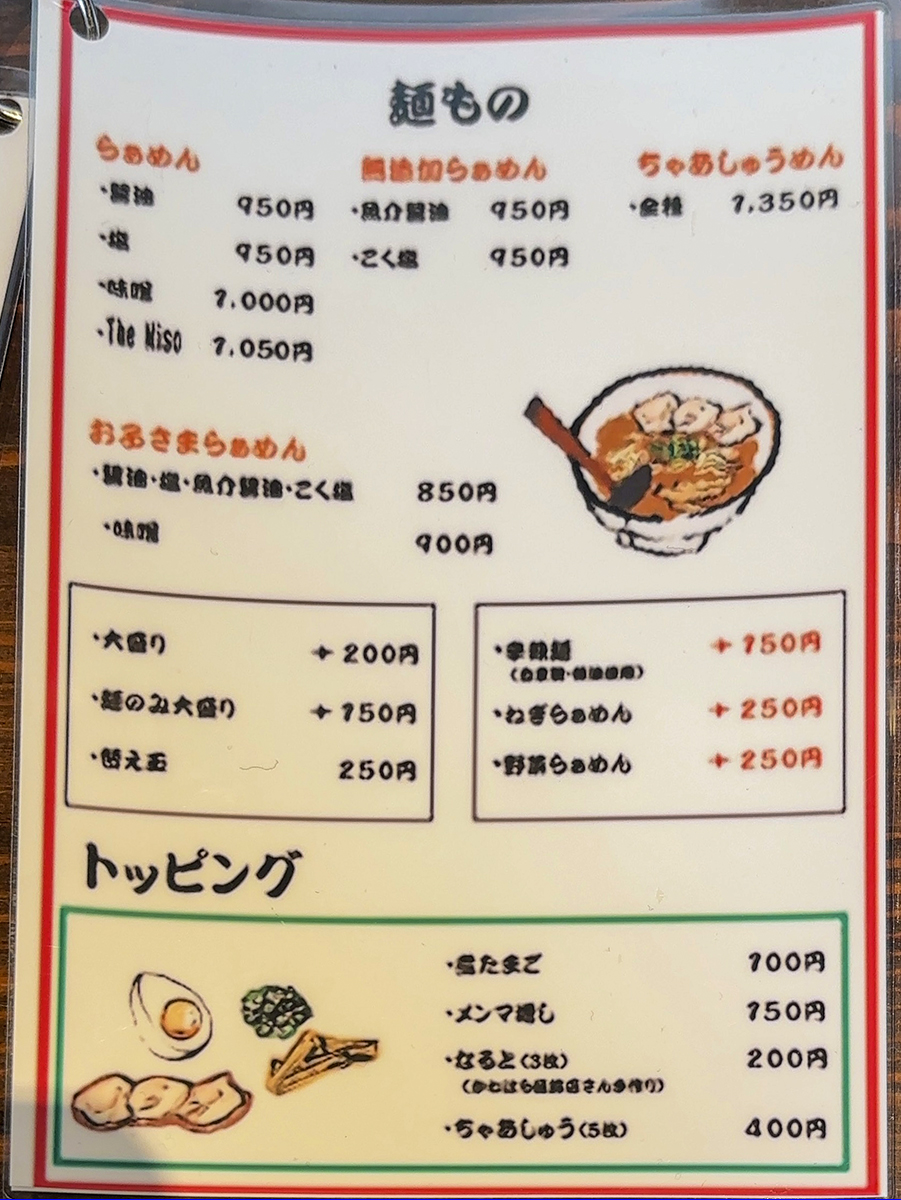 麺もの
らぁめん
・醤油 950円
・塩 950円
・味噌 1,000円
・The Miso 1,050円
無添加らぁめん
・魚介醤油 950円
・こく塩 950円
ちゃあしゅうめん
・全種 1,350円
お子さまらぁめん
・醤油・塩・魚介醤油・こく塩 850円
・味噌 900円
・大盛り +200円
・麺のみ大盛り +150円
・替え玉 250円
・辛辣麺 +150円
・ねぎらぁめん +250円
・野菜らぁめん +250円
トッピング
・煮たまご 100円
・メンマ増し 150円
・なると(3枚) 200円
・ちゃあしゅう(5枚) 400円